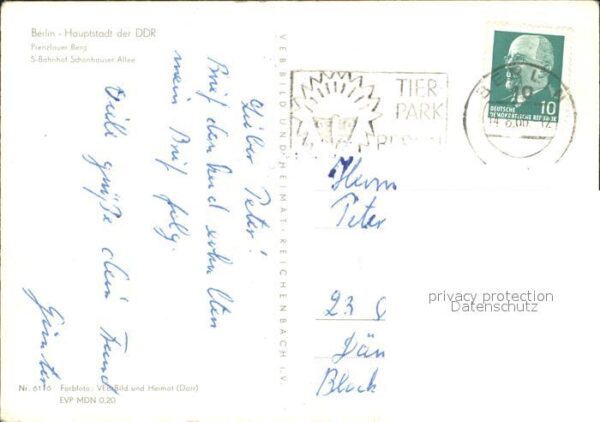 Berlin - Hauptstadt der DDR
Prenzlauer Berg
S-Bahnhof Schönhauser Allee
Lieber Peter!
Brief dankend erhalten
mein Brief folg.
Viele grüße dein Freund
Günter
VEB BILD UND HEIMAT · REICHENBACH I. V.
TIER
PARK
BERLIN
BERLIN
10
DEUTSCHE
DEMOKRATISCHE REPUBLIK
Herrn
Peter
23
Dän
Block
privacy protection
Datenschutz
Nr. 6116 Farbfoto: VEB Bild und Heimat (Darr)
EVP MDN 0,20